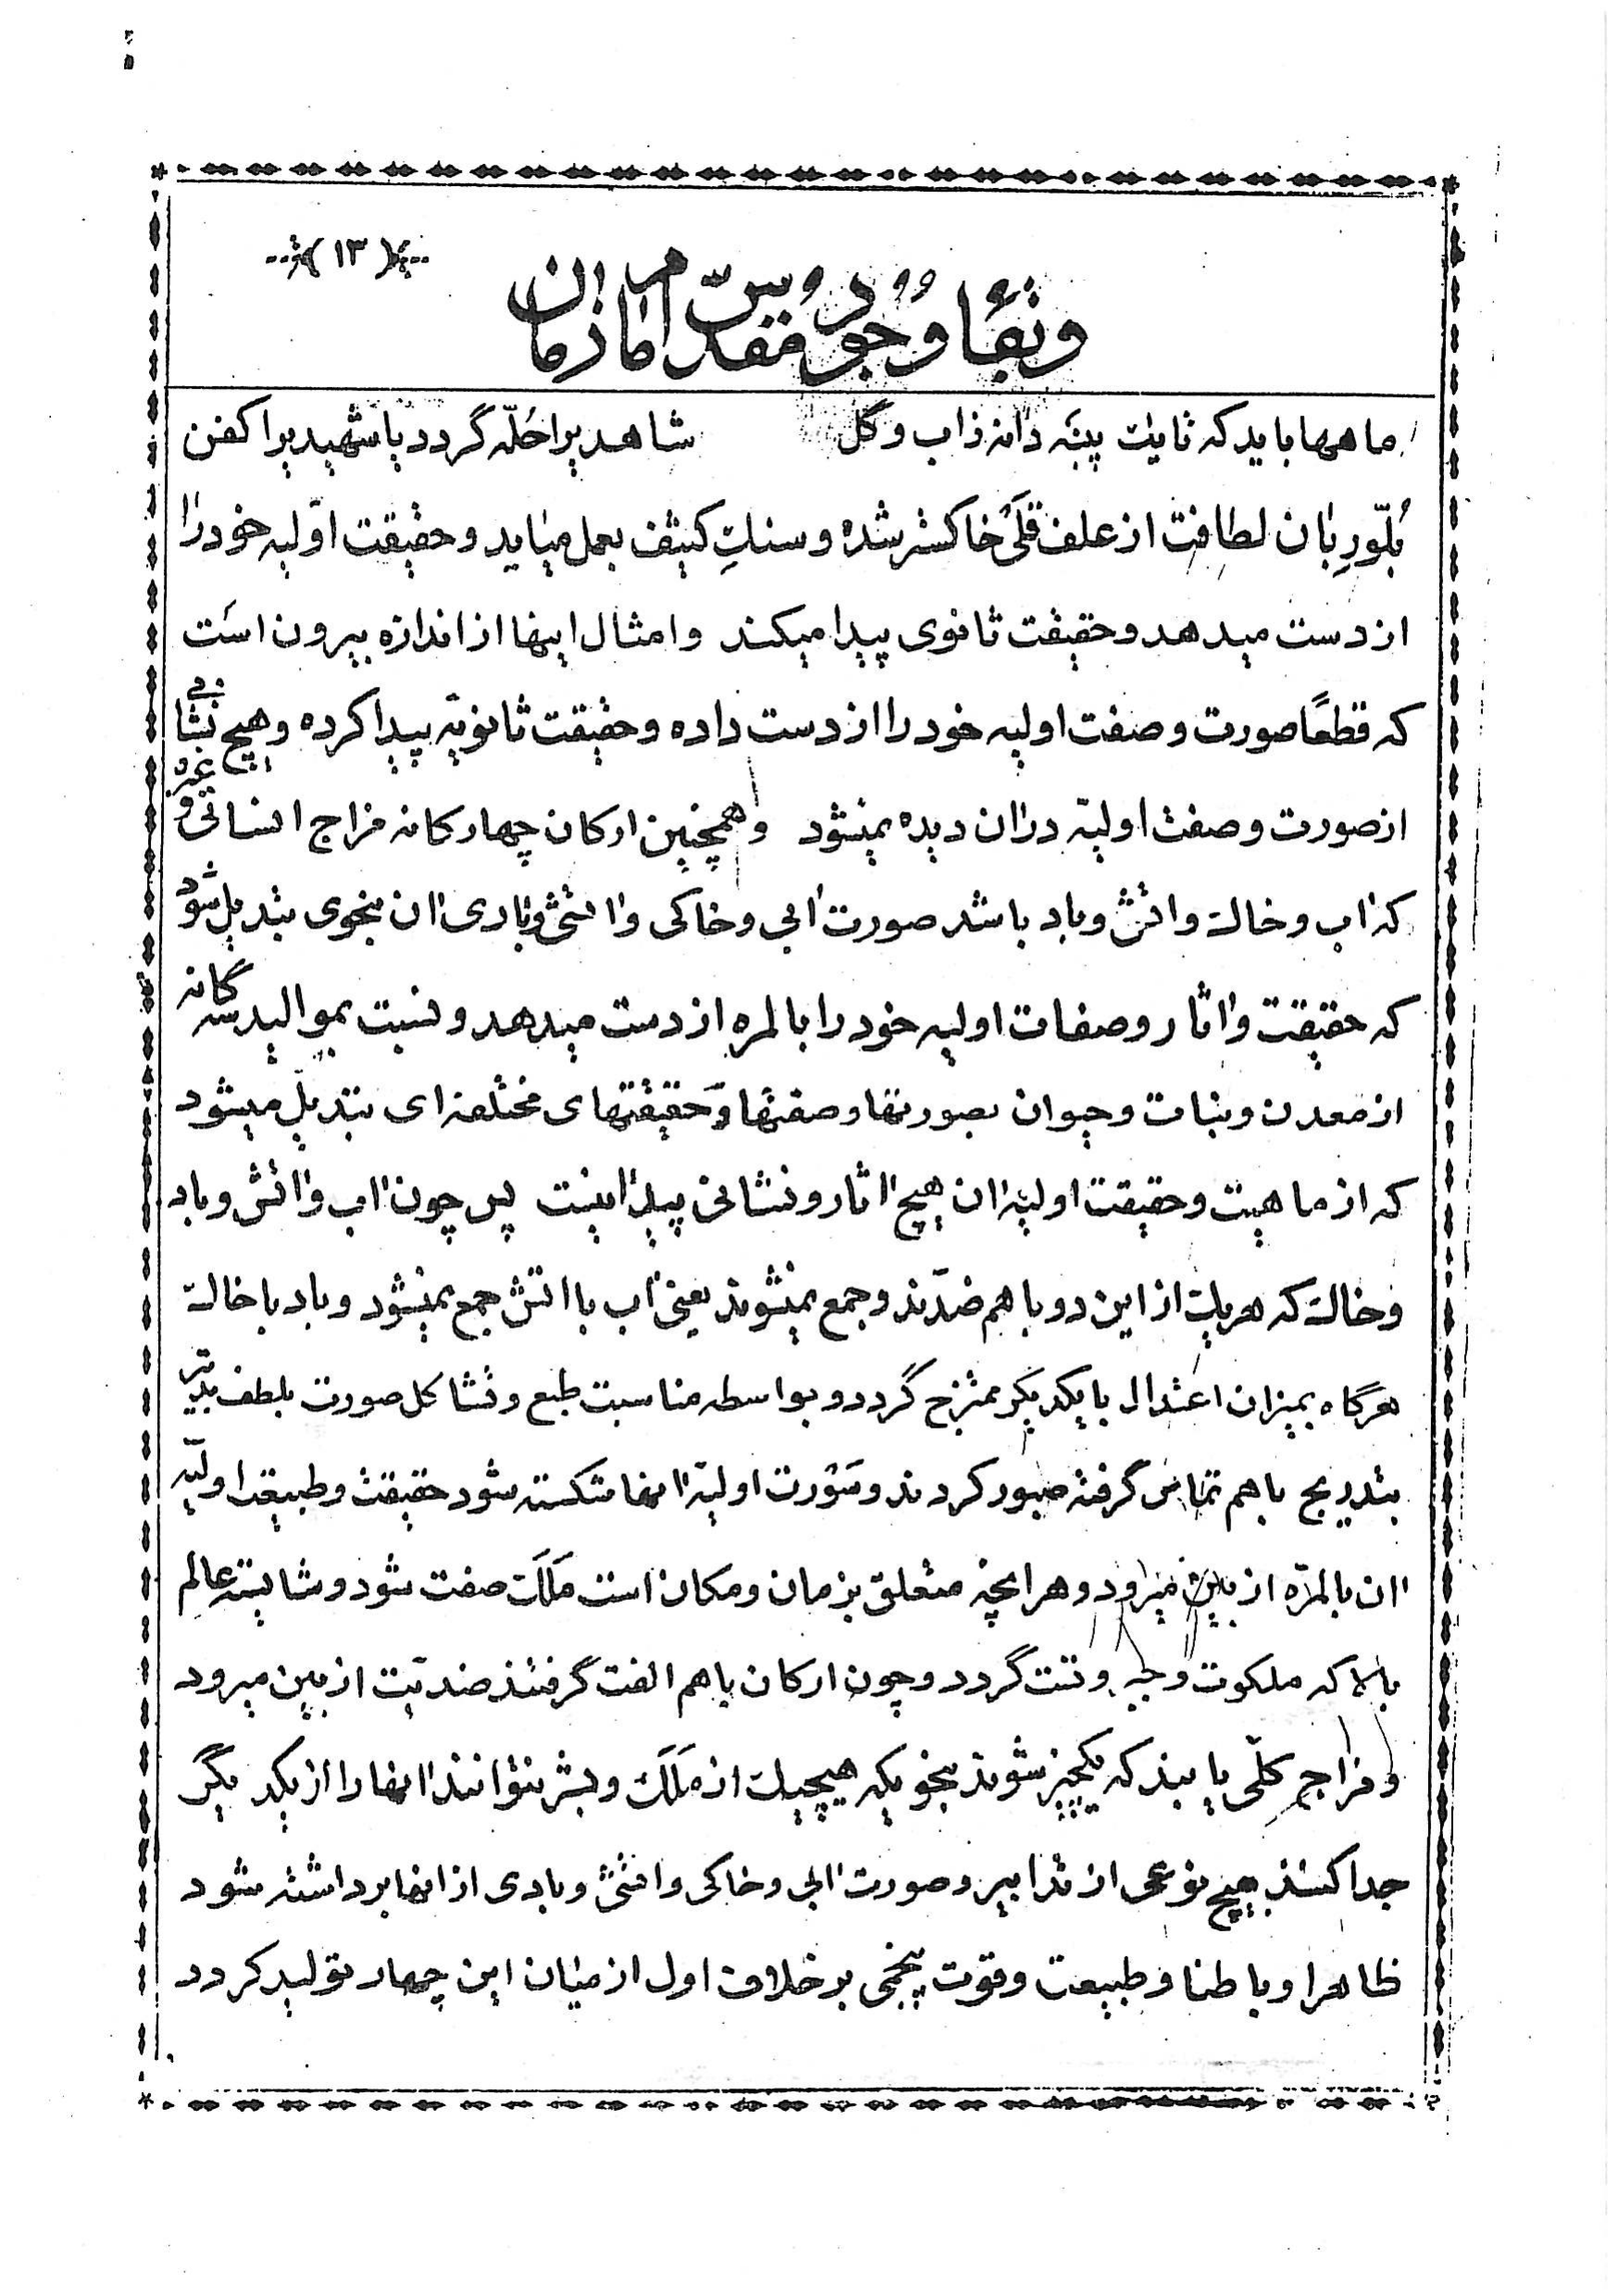 (۱۳)
و بقاء وجود مقدس امام زمان
ماهها باید که تا یک پنبه دانه ز آب و گل شاهدیرا حلّه گردد یا شهیدیرا کفن
بُلّورِ بان لطافت از علف قلی خاکستر شده و سنك کثیف بعمل میاید و حقیقت اوّلیه خود را
از دست میدهد و حقیقت ثانوی پیدا میکند و امثال اینها از اندازه بیرون است
که قطعًا صورت و صفت اولیه خود را از دست داده و حقیقت ثانویّه پیدا کرده و هیچ نشانی
از صورت و صفت اولیّه در ان دیده نمیشود و همچنین ارکان چهارکانه مزاج انسانی و غیره
که اب و خاك و اتش و باد باشد صورت ابی و خاکی و اتشی و بادی ان بنحوی تبدیل شود
که حقیقت و اثار و صفات اولیه خود را بالمره از دست میدهد و نسبت بموالید سه گانه
از معدن و نبات و حیوان بصورتها و صفتها و حقیقتهای مختلفه ای تبدیل میشود
که از ماهیت و حقیقت اولیه ان هیچ اثار و نشانی پیدا نیست پس چون اب و اتش و باد
و خاك که هر یك از این دو با هم ضدّند و جمع نمیشوند یعنی اب با اتش جمع نمیشود و باد با خاك
هرگاه بمیزان اعتدال با یکدیگر ممتزج گردد و بواسطه مناسبت طبع و تشاکل صورت بلطف تدبیر
بتدریج با هم تماس گرفته صبور کردند و سَوْرت اولیّه انها شکسته شود حقیقت و طبیعت اولیّه
ان بالمرّه از بین میرود و هر انچه متعلق بزمان و مکان است مَلَكَ صفت شود و شایسته عالم
بالا که ملکوت وجه وتنت گردد و چون ارکان با هم الفت گرفتند ضدیّت از بین میرود
و مزاج کلّی یابند که یکچیز شوند بنحویکه هیچیك از مَلَك و بشر نتوانند انها را از یکدیگر
جدا کنند بهیچ نوعی از تدابیر و صورت ابی و خاکی و اتشی و بادی از انها برداشته شود
ظاهرا و باطنا و طبیعت و قوت پنجمی بر خلاف اول از میان این چهار تولید کردد